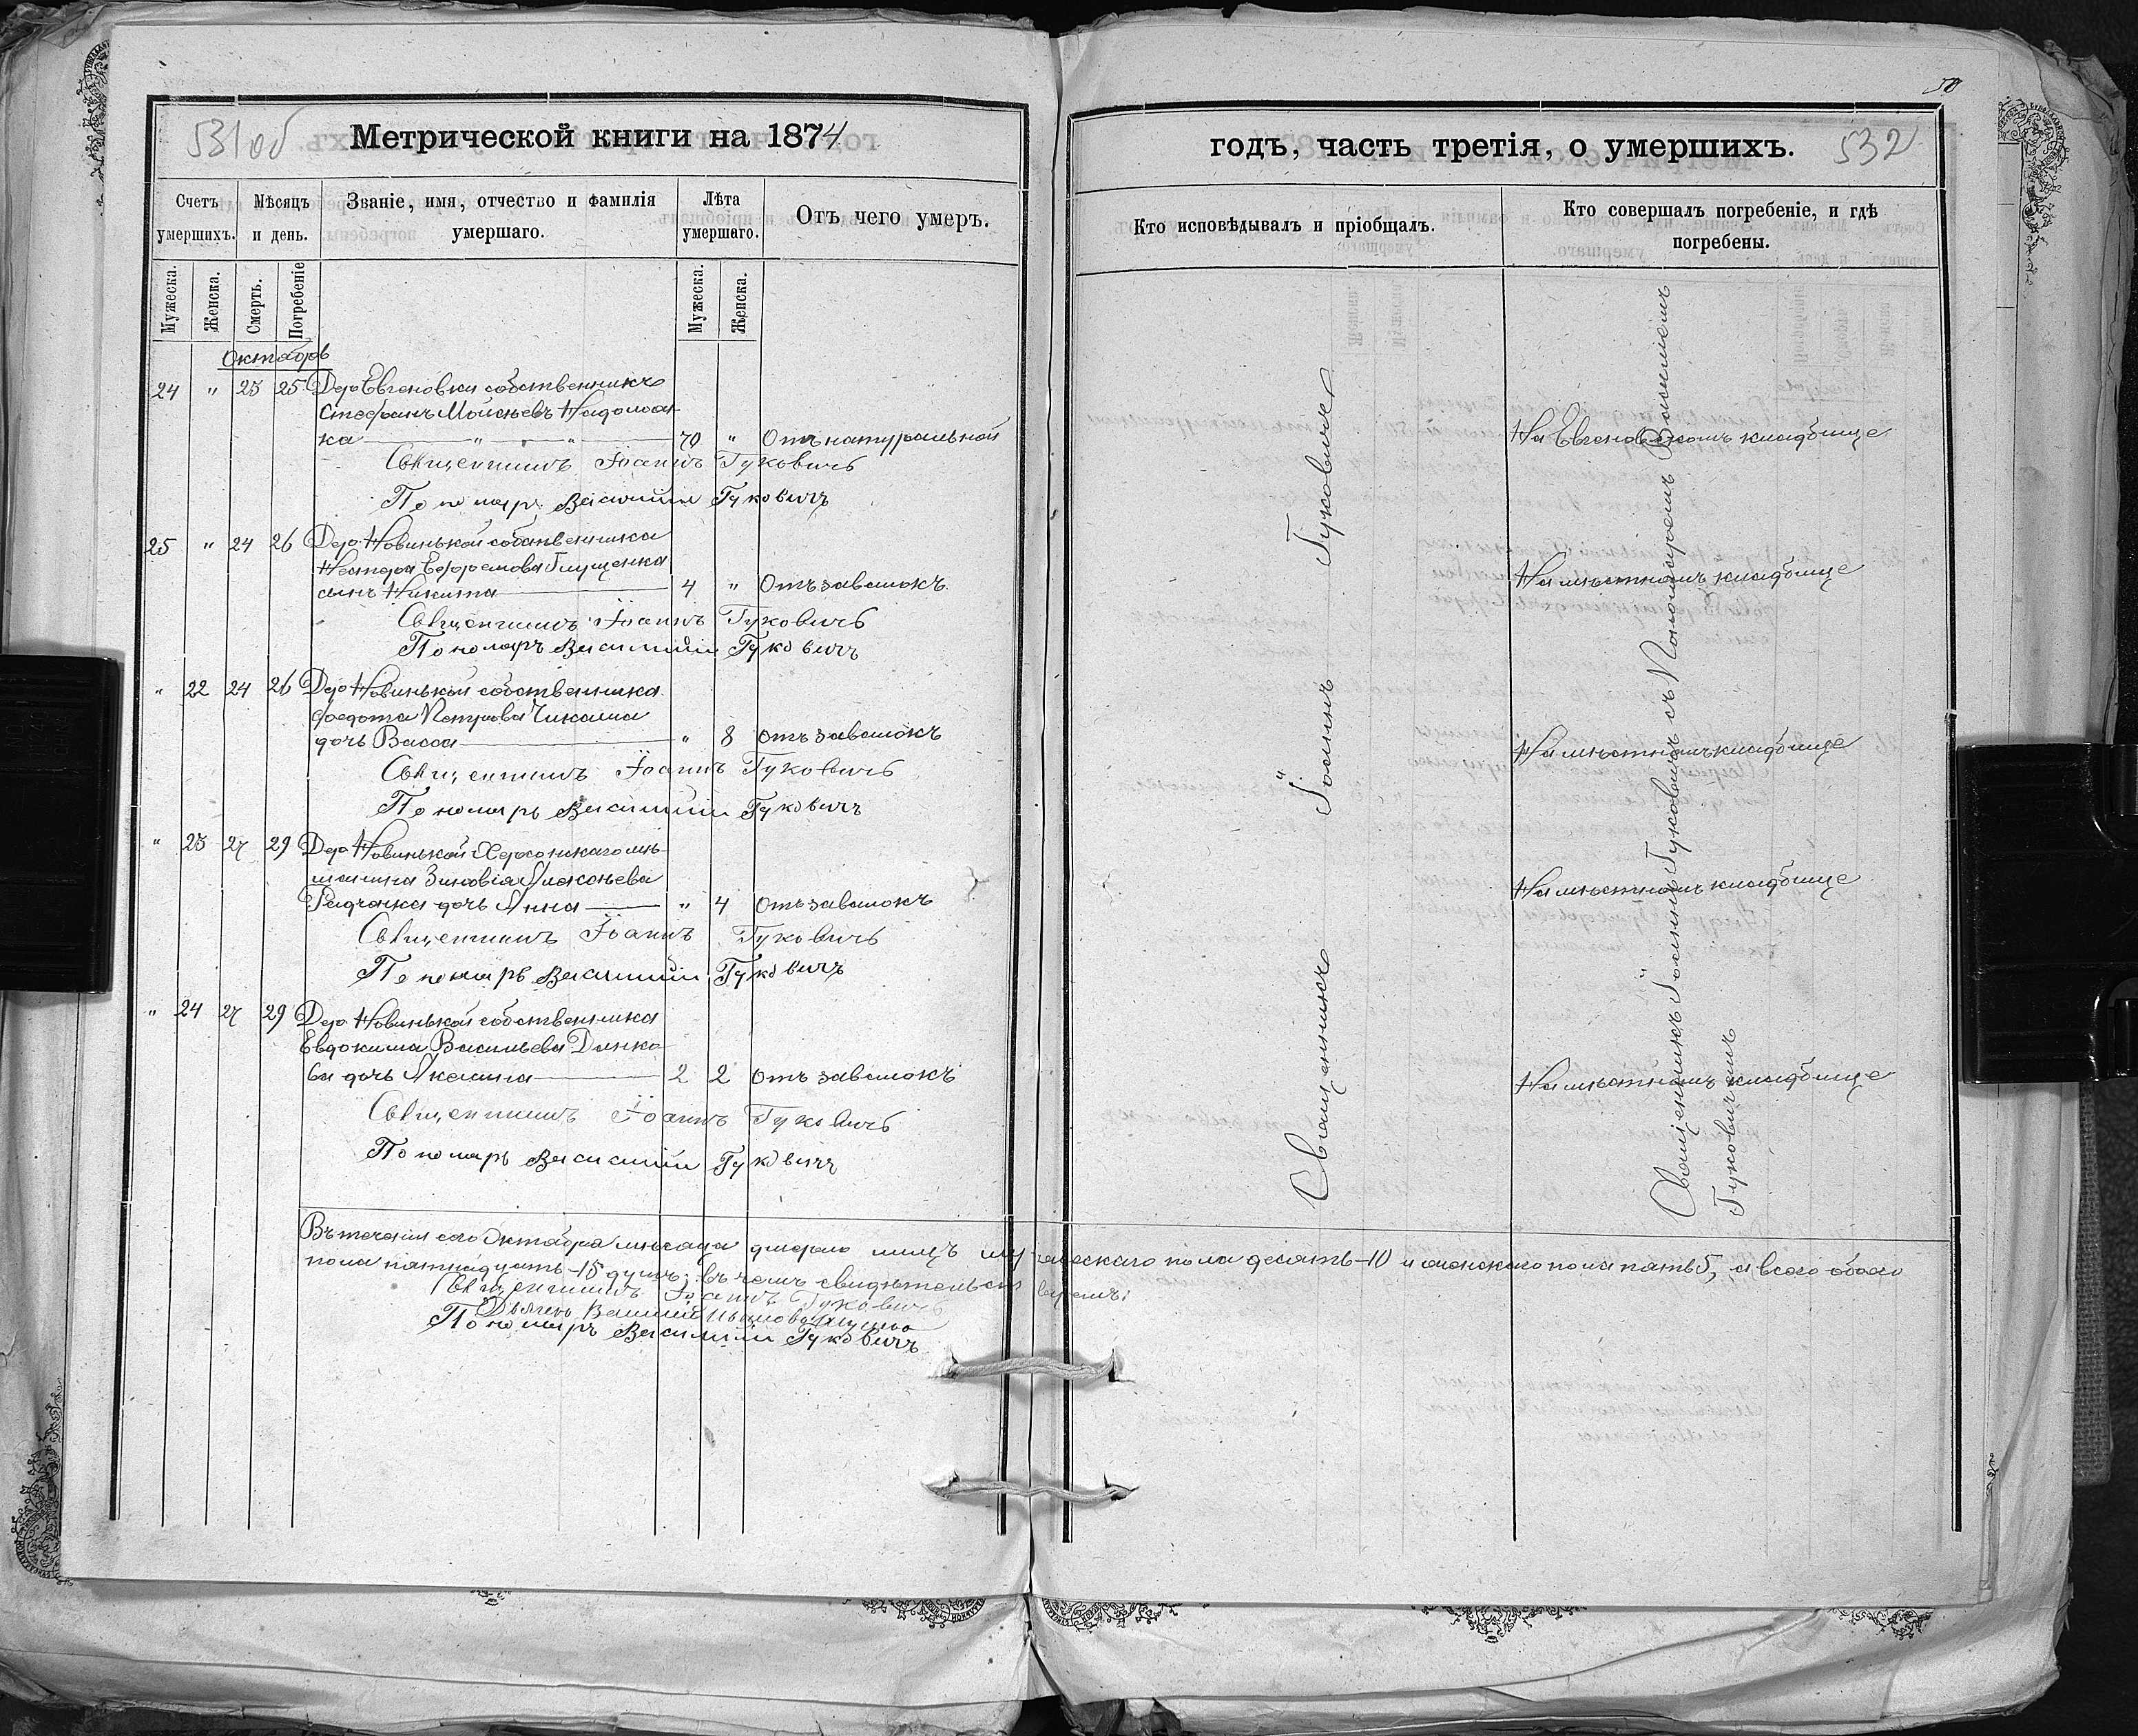 531об Метрической книги на 1874
Счетъ умершихъ.
Мѣсяцъ и день.
Званіе, имя, отчество и фамилія умершаго.
Лѣта умершаго.
Отъ чего умеръ.
Мужеска.
Женска.
Смерть.
Погребеніе
Мужеска.
Женска.
Октябрь
24 " 23 25 Дер Евгеновки собственникъ
Стефанъ Мойсѣевъ
ка — " — " — 70 " Отъ натуральной
Священникъ Іоаннъ Гуковичъ
Пономарь Василій Гуковичъ
25 " 24 26 Дер Новинькой собственника
Нестера Ефремова Глущенка
сынъ Никита — 4 " Отъ завалокъ
Священникъ Іоаннъ Гуковичъ
Пономаръ Василій Гуковичъ
" 22 24 26 Дер Новинькой собственника
Федота Петрова Чикала
дочь Васса — " 8 отъ завалокъ
Священникъ Іоаннъ Гуковичъ
Пономарь Василій Гуковичъ
" 23 27 29 Дер Новинькой Херсонскаго мѣ-
щанина Зиновія Алексѣева
Радченка дочь Анна — " 4 Отъ завалокъ
Священникъ Іоаннъ Гуковичъ
Пономарь Василій Гуковичъ
" 24 27 29 Дер Новинькой собственника
Евдокима Васильева Данко-
ва дочь Акелина — 2 2 отъ завалокъ
Священникъ Іоаннъ Гуковичъ
Пономарь Василій Гуковичъ
Въ теченіи сего Октября мѣсяца умерло лицъ мужескаго пола десять-10 и женскаго пола пять 5, а всего обоего
пола пятнадцать-15 душъ; въ чемъ свидѣтельствуемъ:
Священникъ Іоаннъ Гуковичъ
Дьячекъ
Пономаръ Василій Гуковичъ
50
годъ, часть третія, о умершихъ. 532
Кто исповѣдывалъ и пріобщалъ.
Кто совершалъ погребеніе, и гдѣ погребены.
Священникъ Іоаннъ Гуковичъ
На Евгеновскомъ кладбище
На мѣстномъ кладбище
На мѣстномъ кладбище
На мѣстномъ кладбище
На мѣстномъ кладбище
Священникъ Іоаннъ Гуковичъ съ Пономаремъ Василіемъ
Гуковичемъ